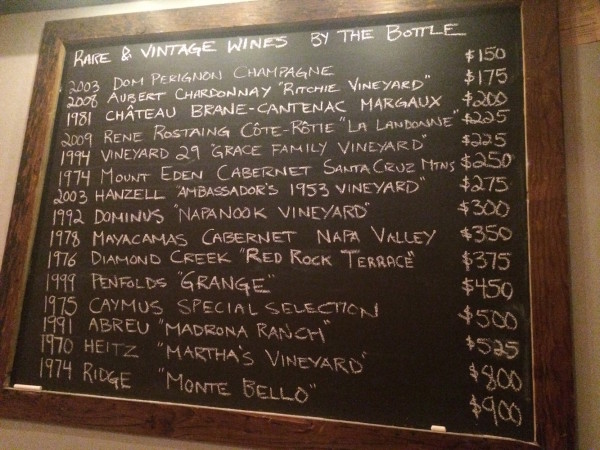 RARE & VINTAGE WINES BY THE BOTTLE
2003 DOM PERIGNON CHAMPAGNE $150
2008 AUBERT CHARDONNAY "RITCHIE VINEYARD" $175
1981 CHÂTEAU BRANE-CANTENAC MARGAUX $200
2009 RENE ROSTAING CÔTE-RÔTIE "LA LANDONNE" $225
1994 VINEYARD 29 "GRACE FAMILY VINEYARD" $225
1974 MOUNT EDEN CABERNET SANTA CRUZ MTNS $250
2003 HANZELL "AMBASSADOR'S 1953 VINEYARD" $275
1992 DOMINUS "NAPANOOK VINEYARD" $300
1978 MAYACAMAS CABERNET NAPA VALLEY $350
1976 DIAMOND CREEK "RED ROCK TERRACE" $375
1999 PENFOLDS "GRANGE" $450
1975 CAYMUS SPECIAL SELECTION $500
1991 ABREU "MADRONA RANCH" $525
1970 HEITZ "MARTHA'S VINEYARD" $800
1974 RIDGE "MONTE BELLO" $900